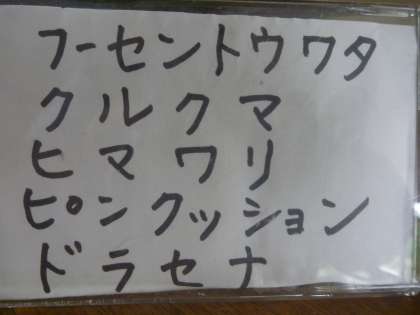 フーセントウワタ
クルクマ
ヒマワリ
ピンクッション
ドラセナ